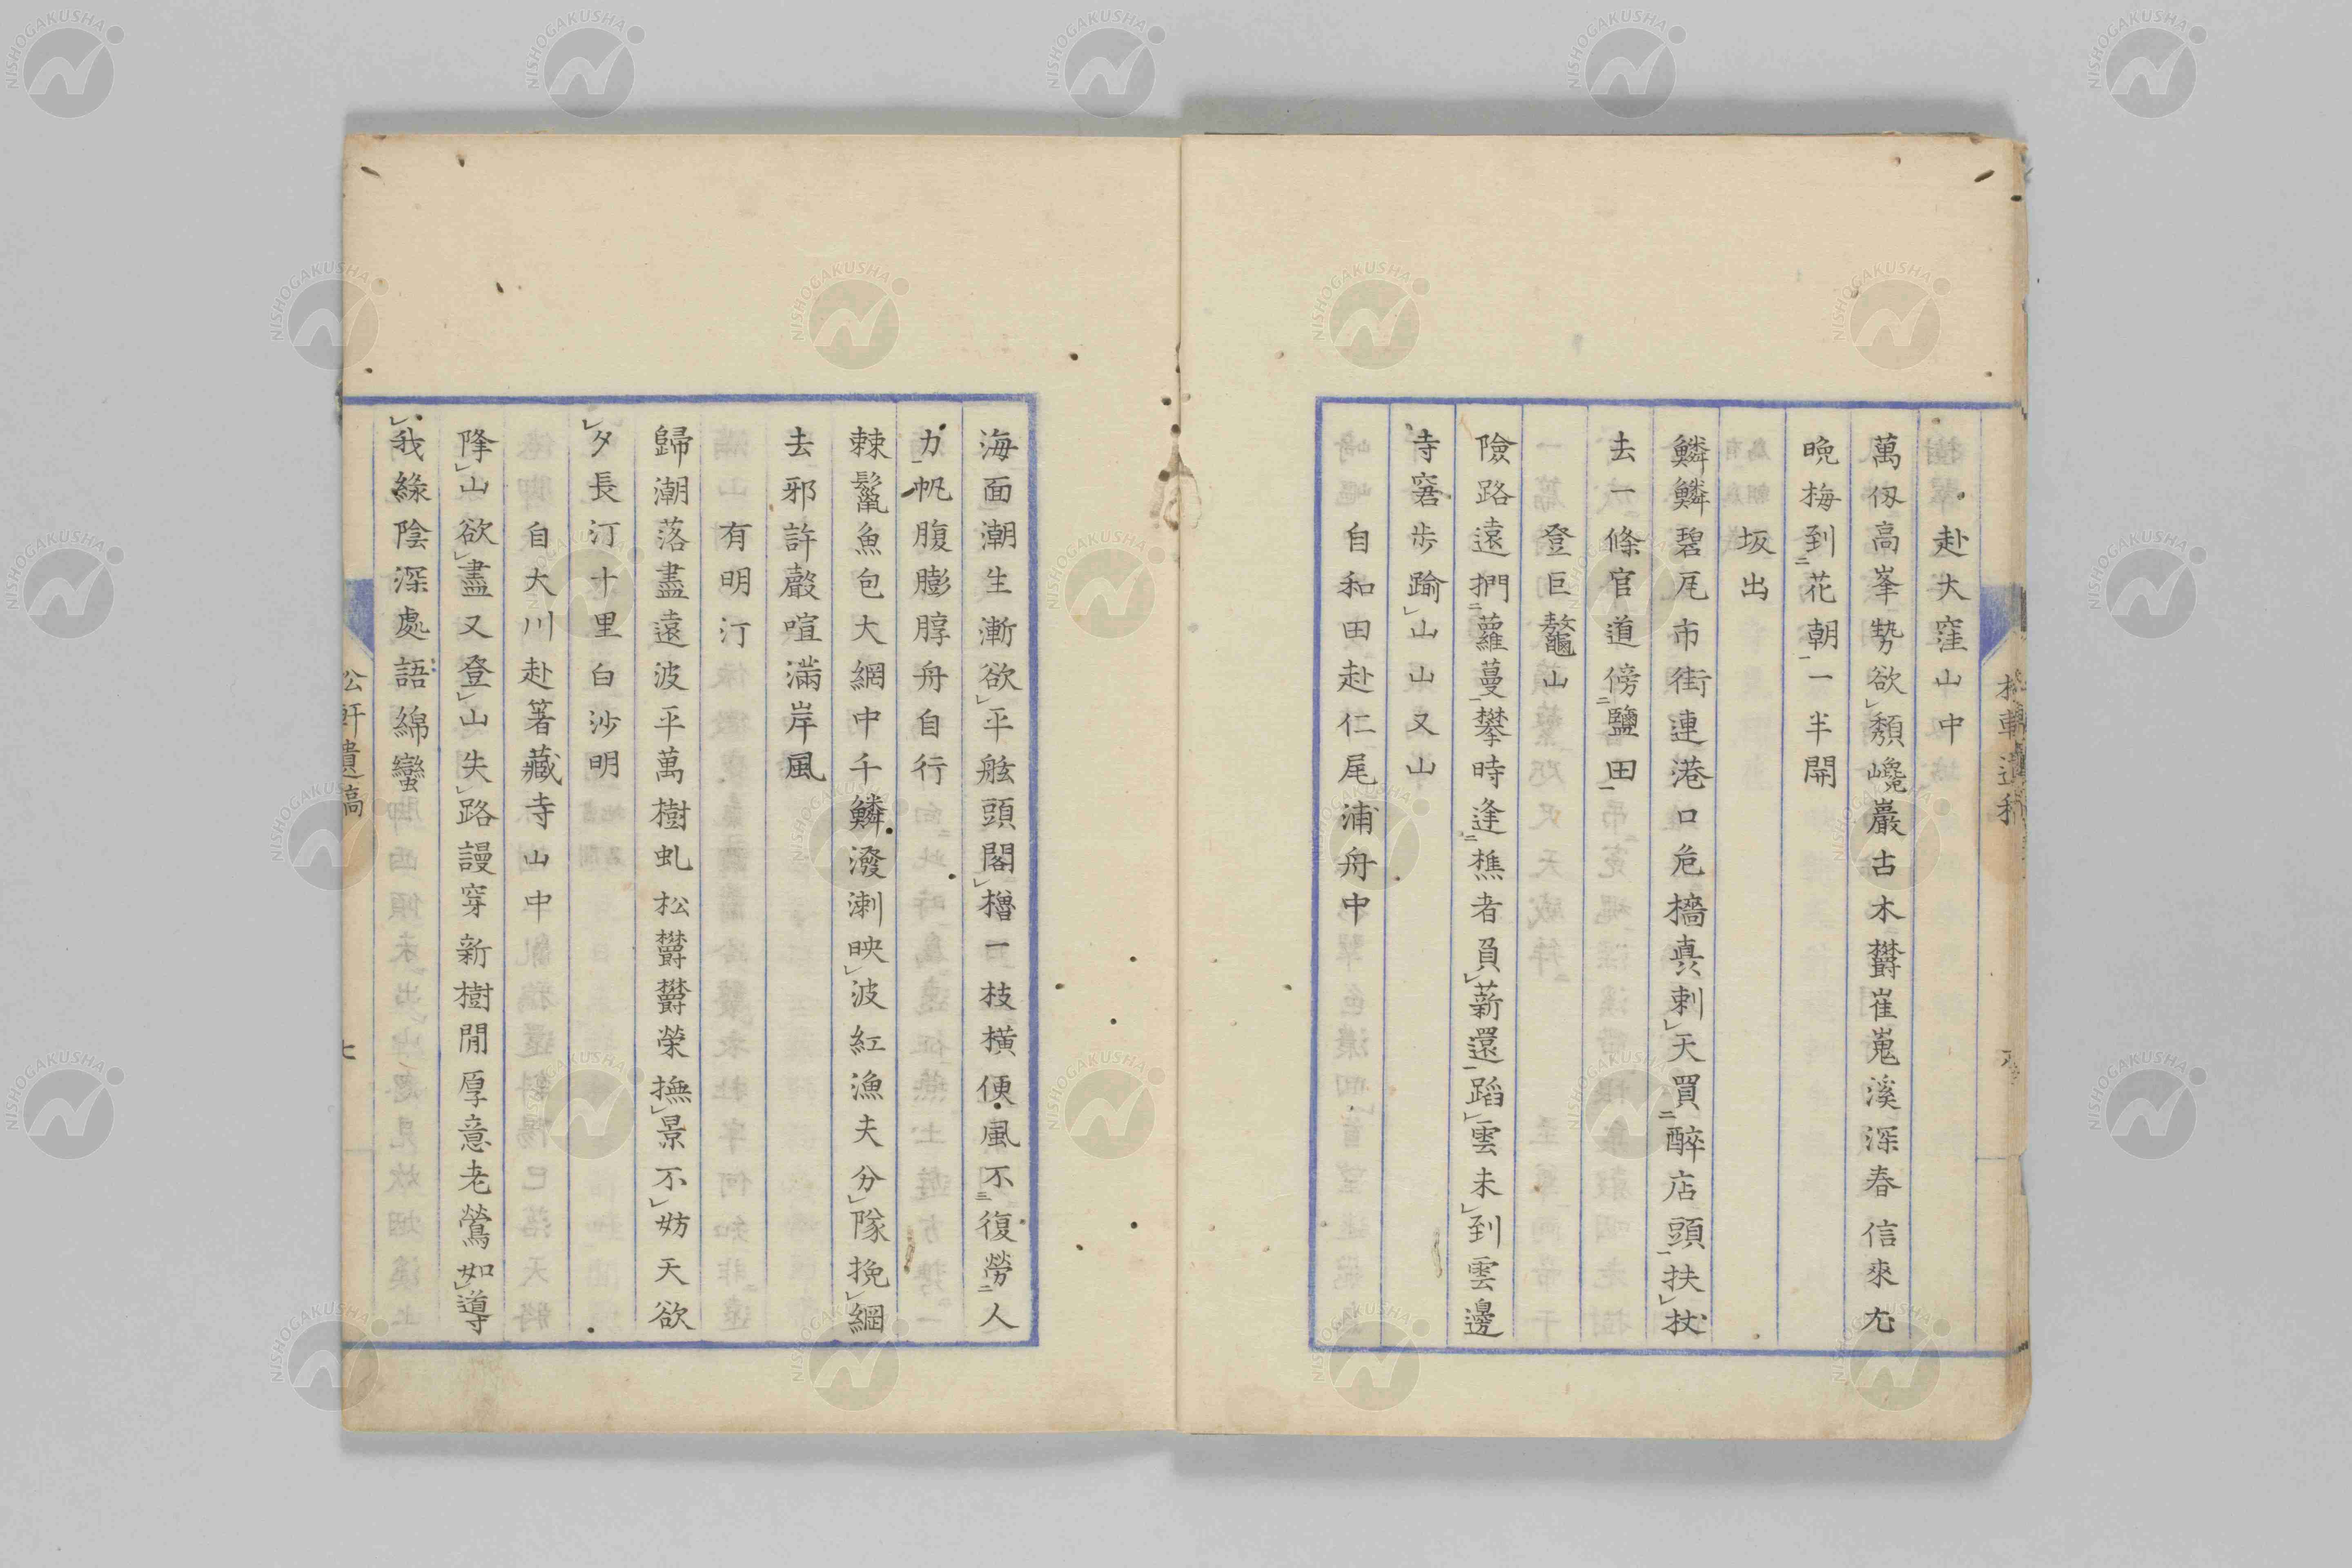 赴大窪山中
萬仭高峯勢欲頽巉巖古木欝崔嵬溪深春信來尤
晩梅到花朝一半開
坂出
鱗鱗碧瓦市街連港口危檣真刺天買醉店頭扶杖
去一條官道傍鹽田
登巨鼇山
險路遠捫蘿蔓攀時逢樵者負薪還蹈雲未到雲邊
寺窘歩踰山山又山
自和田赴仁尾浦舟中
海面潮生漸欲平舷頭閣櫓一枝橫便風不復勞人
力帆腹膨脝舟自行
棘鬣魚包大網中千鱗潑溂映波紅漁夫分隊挽網
去邪許聲喧滿岸風
有明汀
歸潮落盡遠波平萬樹虬松欝欝榮撫景不妨天欲
夕長汀十里白沙明
自大川赴箸藏寺山中
降山欲盡又登山失路謾穿新樹閒厚意老鶯如導
我綠陰深處語綿蠻
松軒遺稿
七